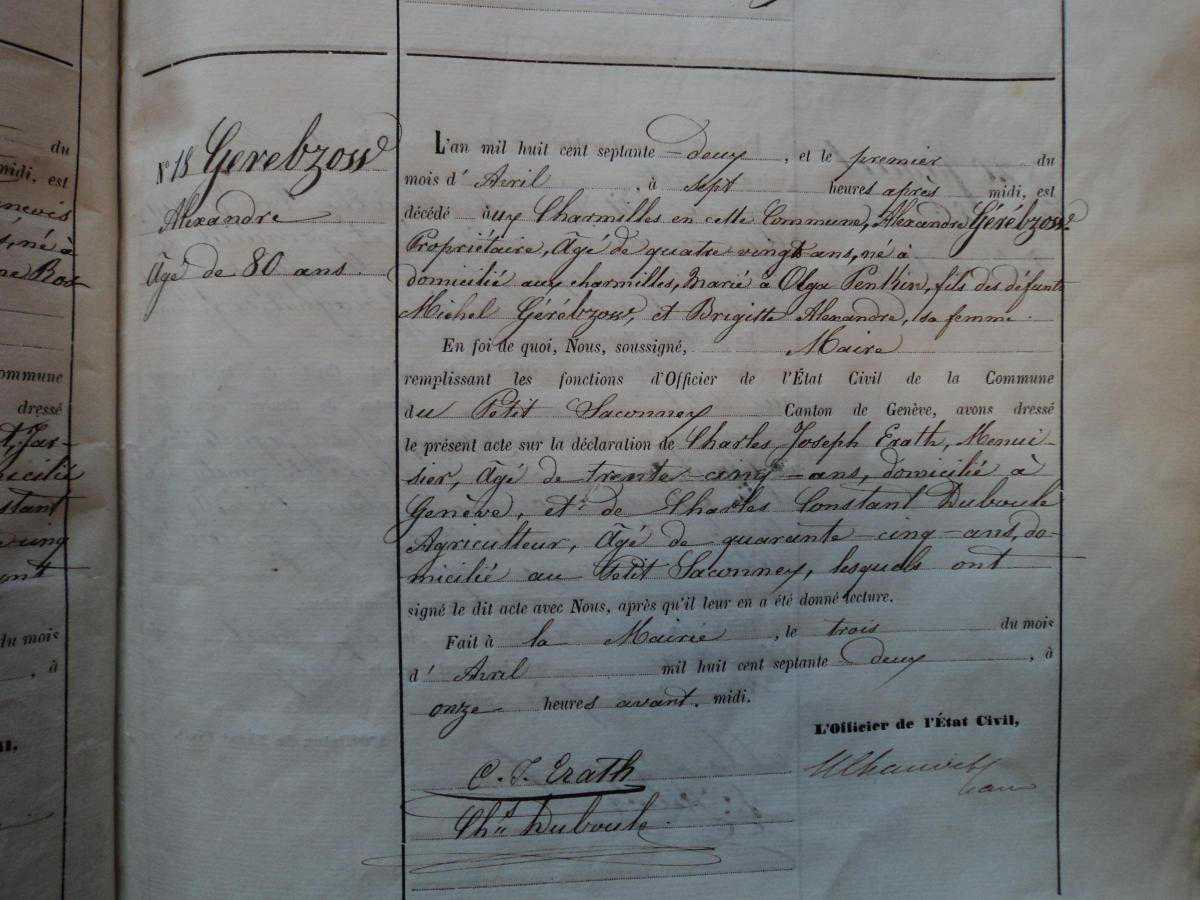 du
midi, est
né à
commune
dressé
du mois
à
N° 18 Gérebzow
Alexandre
Âgé de 80 ans.
L'an mil huit cent septante deux, et le premier du
mois d'Avril, à sept heures après midi, est
décédé aux Charmilles en cette Commune, Alexandre Gérébzow
Propriétaire, Âgé de quatre vingts ans, né à
domicilié aux charmilles, marié à Olga Penkin, fils des défunts
Michel Gérébzow, et Brigitte Alexandre, sa femme.
En foi de quoi, Nous, soussigné, Maire
remplissant les fonctions d'Officier de l'État Civil de la Commune
du Petit Saconnex Canton de Genève, avons dressé
le présent acte sur la déclaration de Charles Joseph Erath, Menui-
sier, âgé de trente-cinq-ans, domicilié à
Genève, et de Charles Constant Duboule
Agriculteur, Âgé de quarante-cinq-ans, do-
micilié au Petit Saconnex, lesquels ont
signé le dit acte avec Nous, après qu'il leur en a été donné lecture.
Fait à la Mairie, le trois du mois
d'Avril mil huit cent septante deux, à
onze heures avant midi.
L'Officier de l'État Civil,
C. J. Erath
Ch. Duboule.